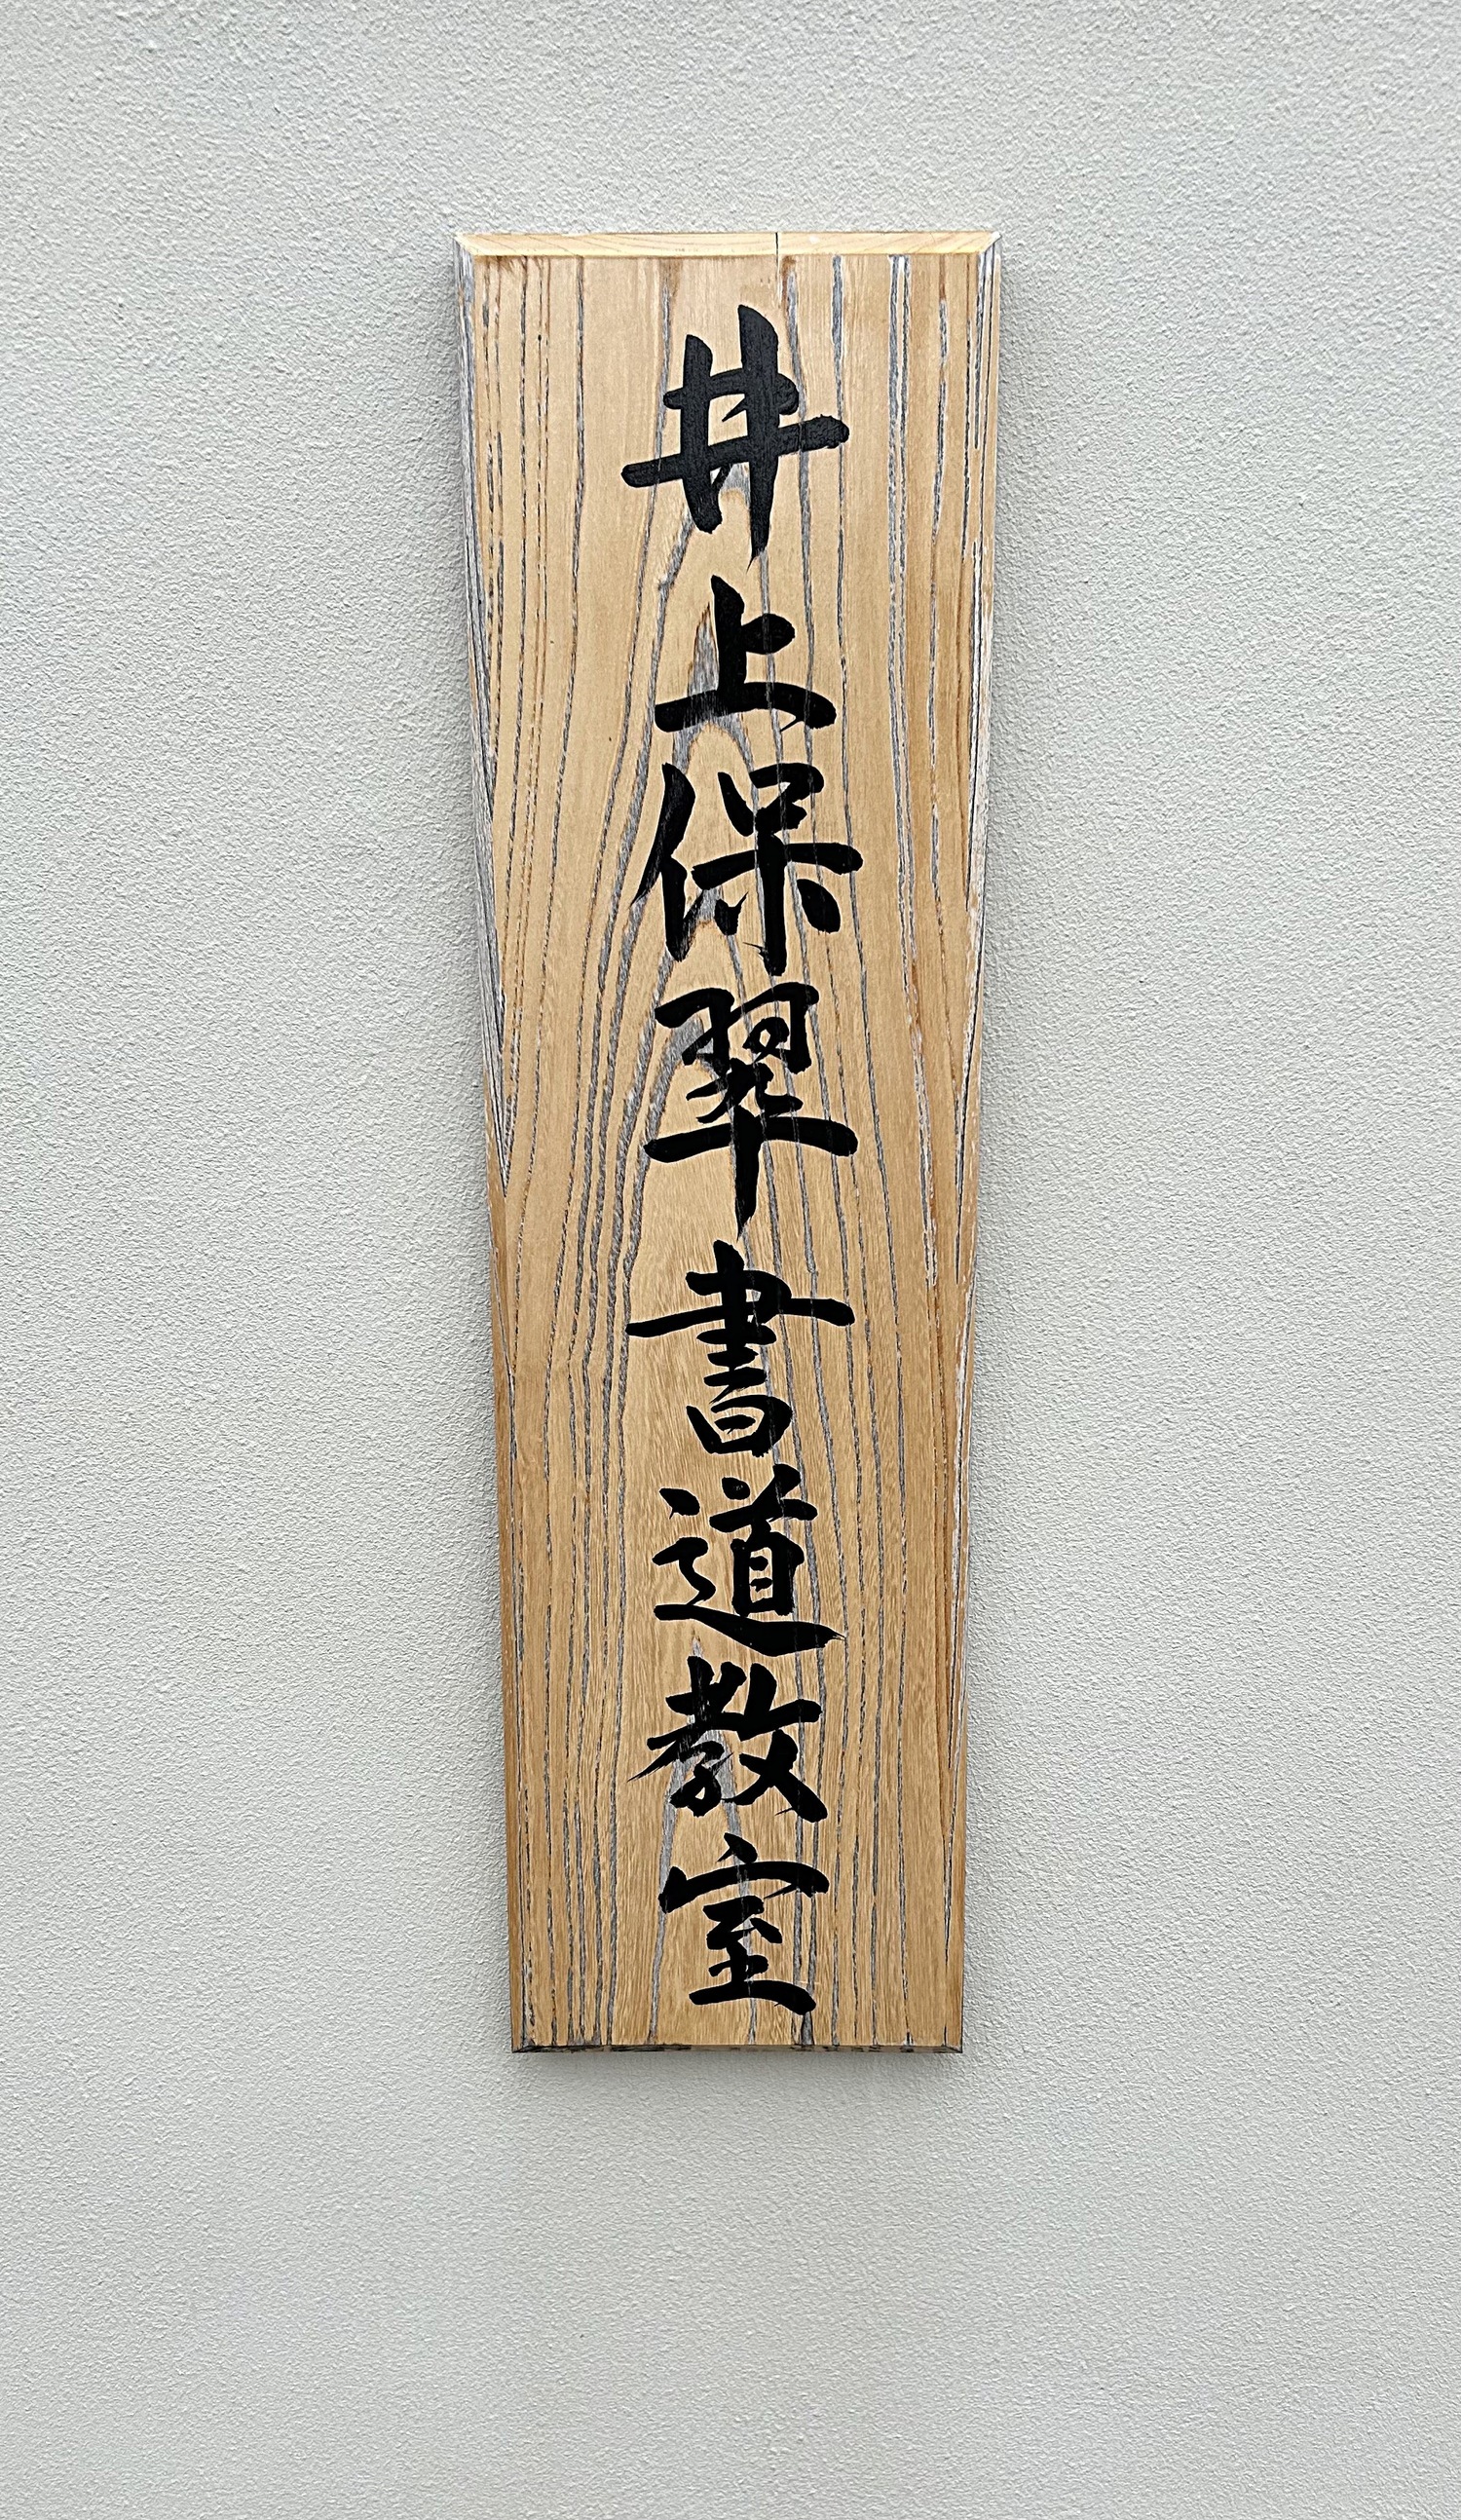 井上保翠書道教室